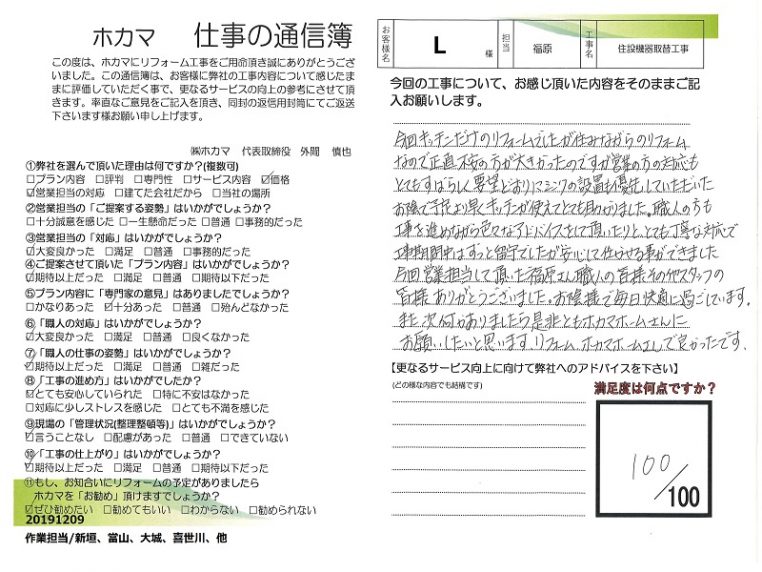 ホカマ 仕事の通信簿
この度は、ホカマにリフォーム工事をご用命頂き誠にありがとうござ
いました。この通信簿は、お客様に弊社の工事内容について感じたま
まに評価していただく事で、更なるサービスの向上の参考にさせて頂
きます。率直なご意見をご記入を頂き、同封の返信用封筒にてご返送
下さいます様お願い申し上げます。
㈱ホカマ 代表取締役 外間 慎也
①弊社を選んで頂いた理由は何ですか?(複数可)
□プラン内容 □評判 □専門性 □サービス内容 ☑価格
☑営業担当の対応 □建てた会社だから □当社の場所
②営業担当の「ご提案する姿勢」はいかがでしょうか?
□十分誠意を感じた □一生懸命だった □普通 □事務的だった
③営業担当の「対応」はいかがでしょうか?
☑大変良かった □満足 □普通 □事務的だった
④ご提案させて頂いた「プラン内容」はいかがでしょうか?
☑期待以上だった □満足 □普通 □期待以下だった
⑤プラン内容に「専門家の意見」はありましたでしょうか?
□かなりあった ☑十分あった □普通 □殆んどなかった
⑥「職人の対応」はいかがでしょうか?
☑大変良かった □満足 □普通 □良くなかった
⑦「職人の仕事の姿勢」はいかがでしょうか?
☑期待以上だった □満足 □普通 □雑だった
⑧「工事の進め方」はいかがでしたか?
☑とても安心していられた □特に不安はなかった
□対応に少しストレスを感じた □とても不満を感じた
⑨現場の「管理状況(整理整頓等)」はいかがでしょうか?
☑言うことなし □配慮があった □普通 □できていない
⑩「工事の仕上がり」はいかがでしょうか?
☑期待以上だった □満足 □普通 □期待以下だった
⑪もし、お知合いにリフォームの予定がありましたら
ホカマを「お勧め」頂けますでしょうか?
☑ぜひ勧めたい □勧めてもいい □わからない □勧められない
20191209
作業担当/新垣、富山、大城、喜世川、他
お客様名 L 様 担当 福原 工事名 住設機器取替工事
今回の工事について、お感じ頂いた内容をそのままご記
入お願いします。
今回キッチンだけのリフォームでしたが住みながらのリフォーム
なので正直不安の方が大きかったのですが営業の方の対応も
とてもすばらしく要望どおりにシンクの設置も優先していただいた
お陰で予定より早くキッチンが使えてとても助かりました。職人の方も
工事を進めながら色々なアドバイスをして頂いたりと、とても丁寧な対応で
工事期間中はずっと留守でしたが安心して任せる事ができました
今回営業担当して頂いた福原さん職人の皆様その他スタッフの
皆様ありがとうございました。お陰様で毎日快適に過ごしています。
また次何かありましたら是非ともホカマホームさんに
お願いしたいと思います。リフォームホカマホームさんで良かったです。
【更なるサービス向上に向けて弊社へのアドバイスを下さい】
(どの様な内容でも結構です)
満足度は何点ですか?
100/100